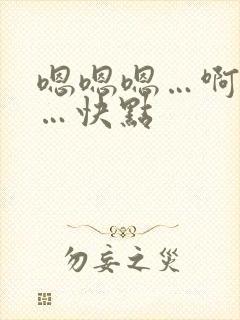 嗯嗯嗯…啊
…快點
勿妄之災